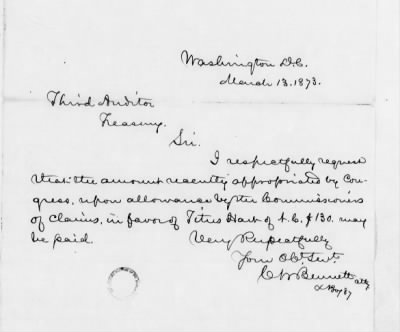 Washington D.C.
March 13, 1873.
Third Auditor
Treasury.
Sir.
I respectfully request
that the amount recently appropriated by Con-
gress, upon allowance by the Commissioners
of Claims, in favor of Titus Hart of S.C. $130. may
be paid.
Very Respectfully
Your Obt. Servt.
C W Bennett atty
Box 37